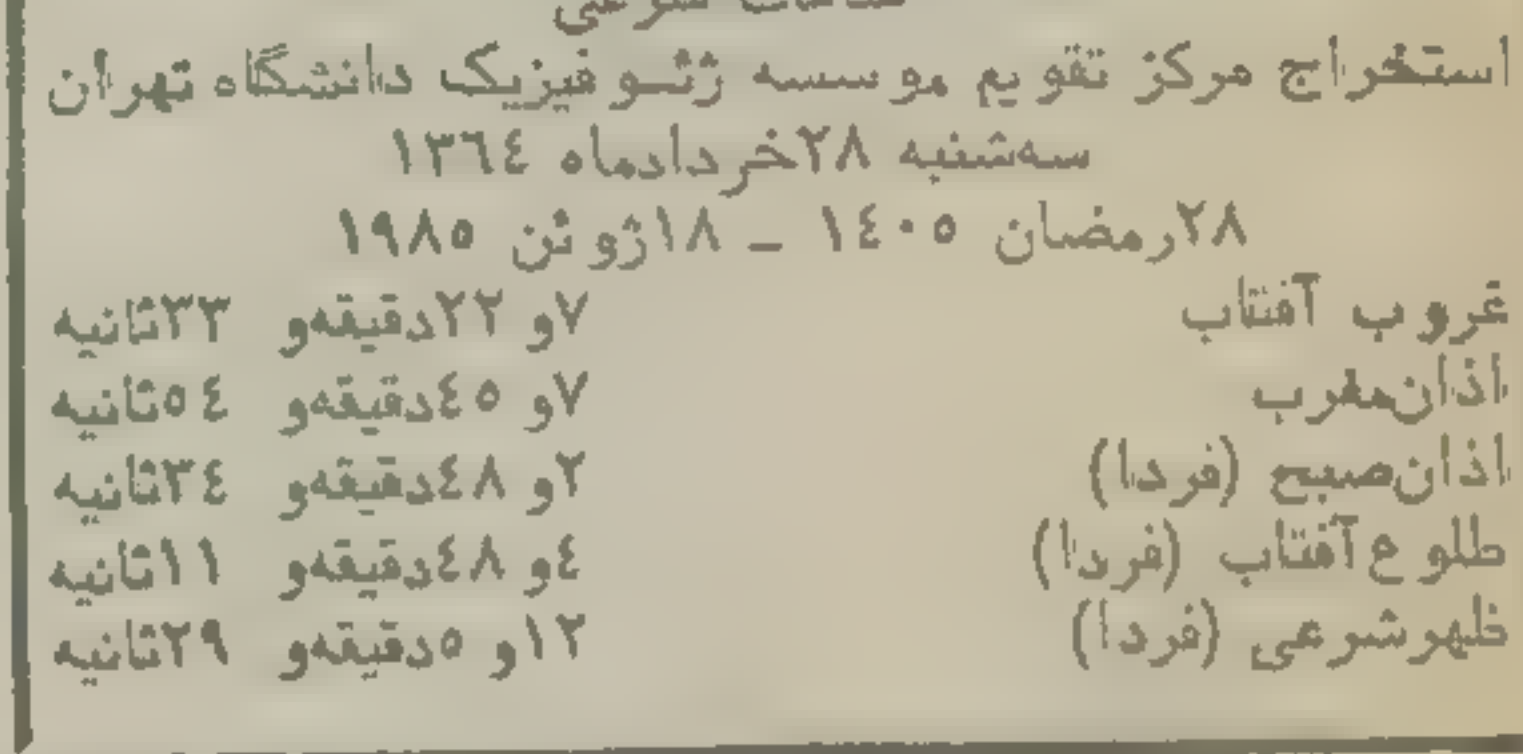 استخراج مرکز تقویم موسسه ژئوفیزیک دانشگاه تهران
سه‌شنبه ۲۸خردادماه ۱۳۶٤
۲۸رمضان ۱٤۰۵ ـ ۱۸ژوئن ۱۹۸۵
غروب آفتاب ۷و ۲۲دقیقه‌و ۳۳ثانیه
اذان‌مغرب ۷و ٤۵دقیقه‌و ۵٤ثانیه
اذان‌صبح (فردا) ۲و ٤۸دقیقه‌و ۳٤ثانیه
طلوع آفتاب (فردا) ٤و ٤۸دقیقه‌و ۱۱ثانیه
ظهرشرعی (فردا) ۱۲و ۵دقیقه‌و ۲۹ثانیه